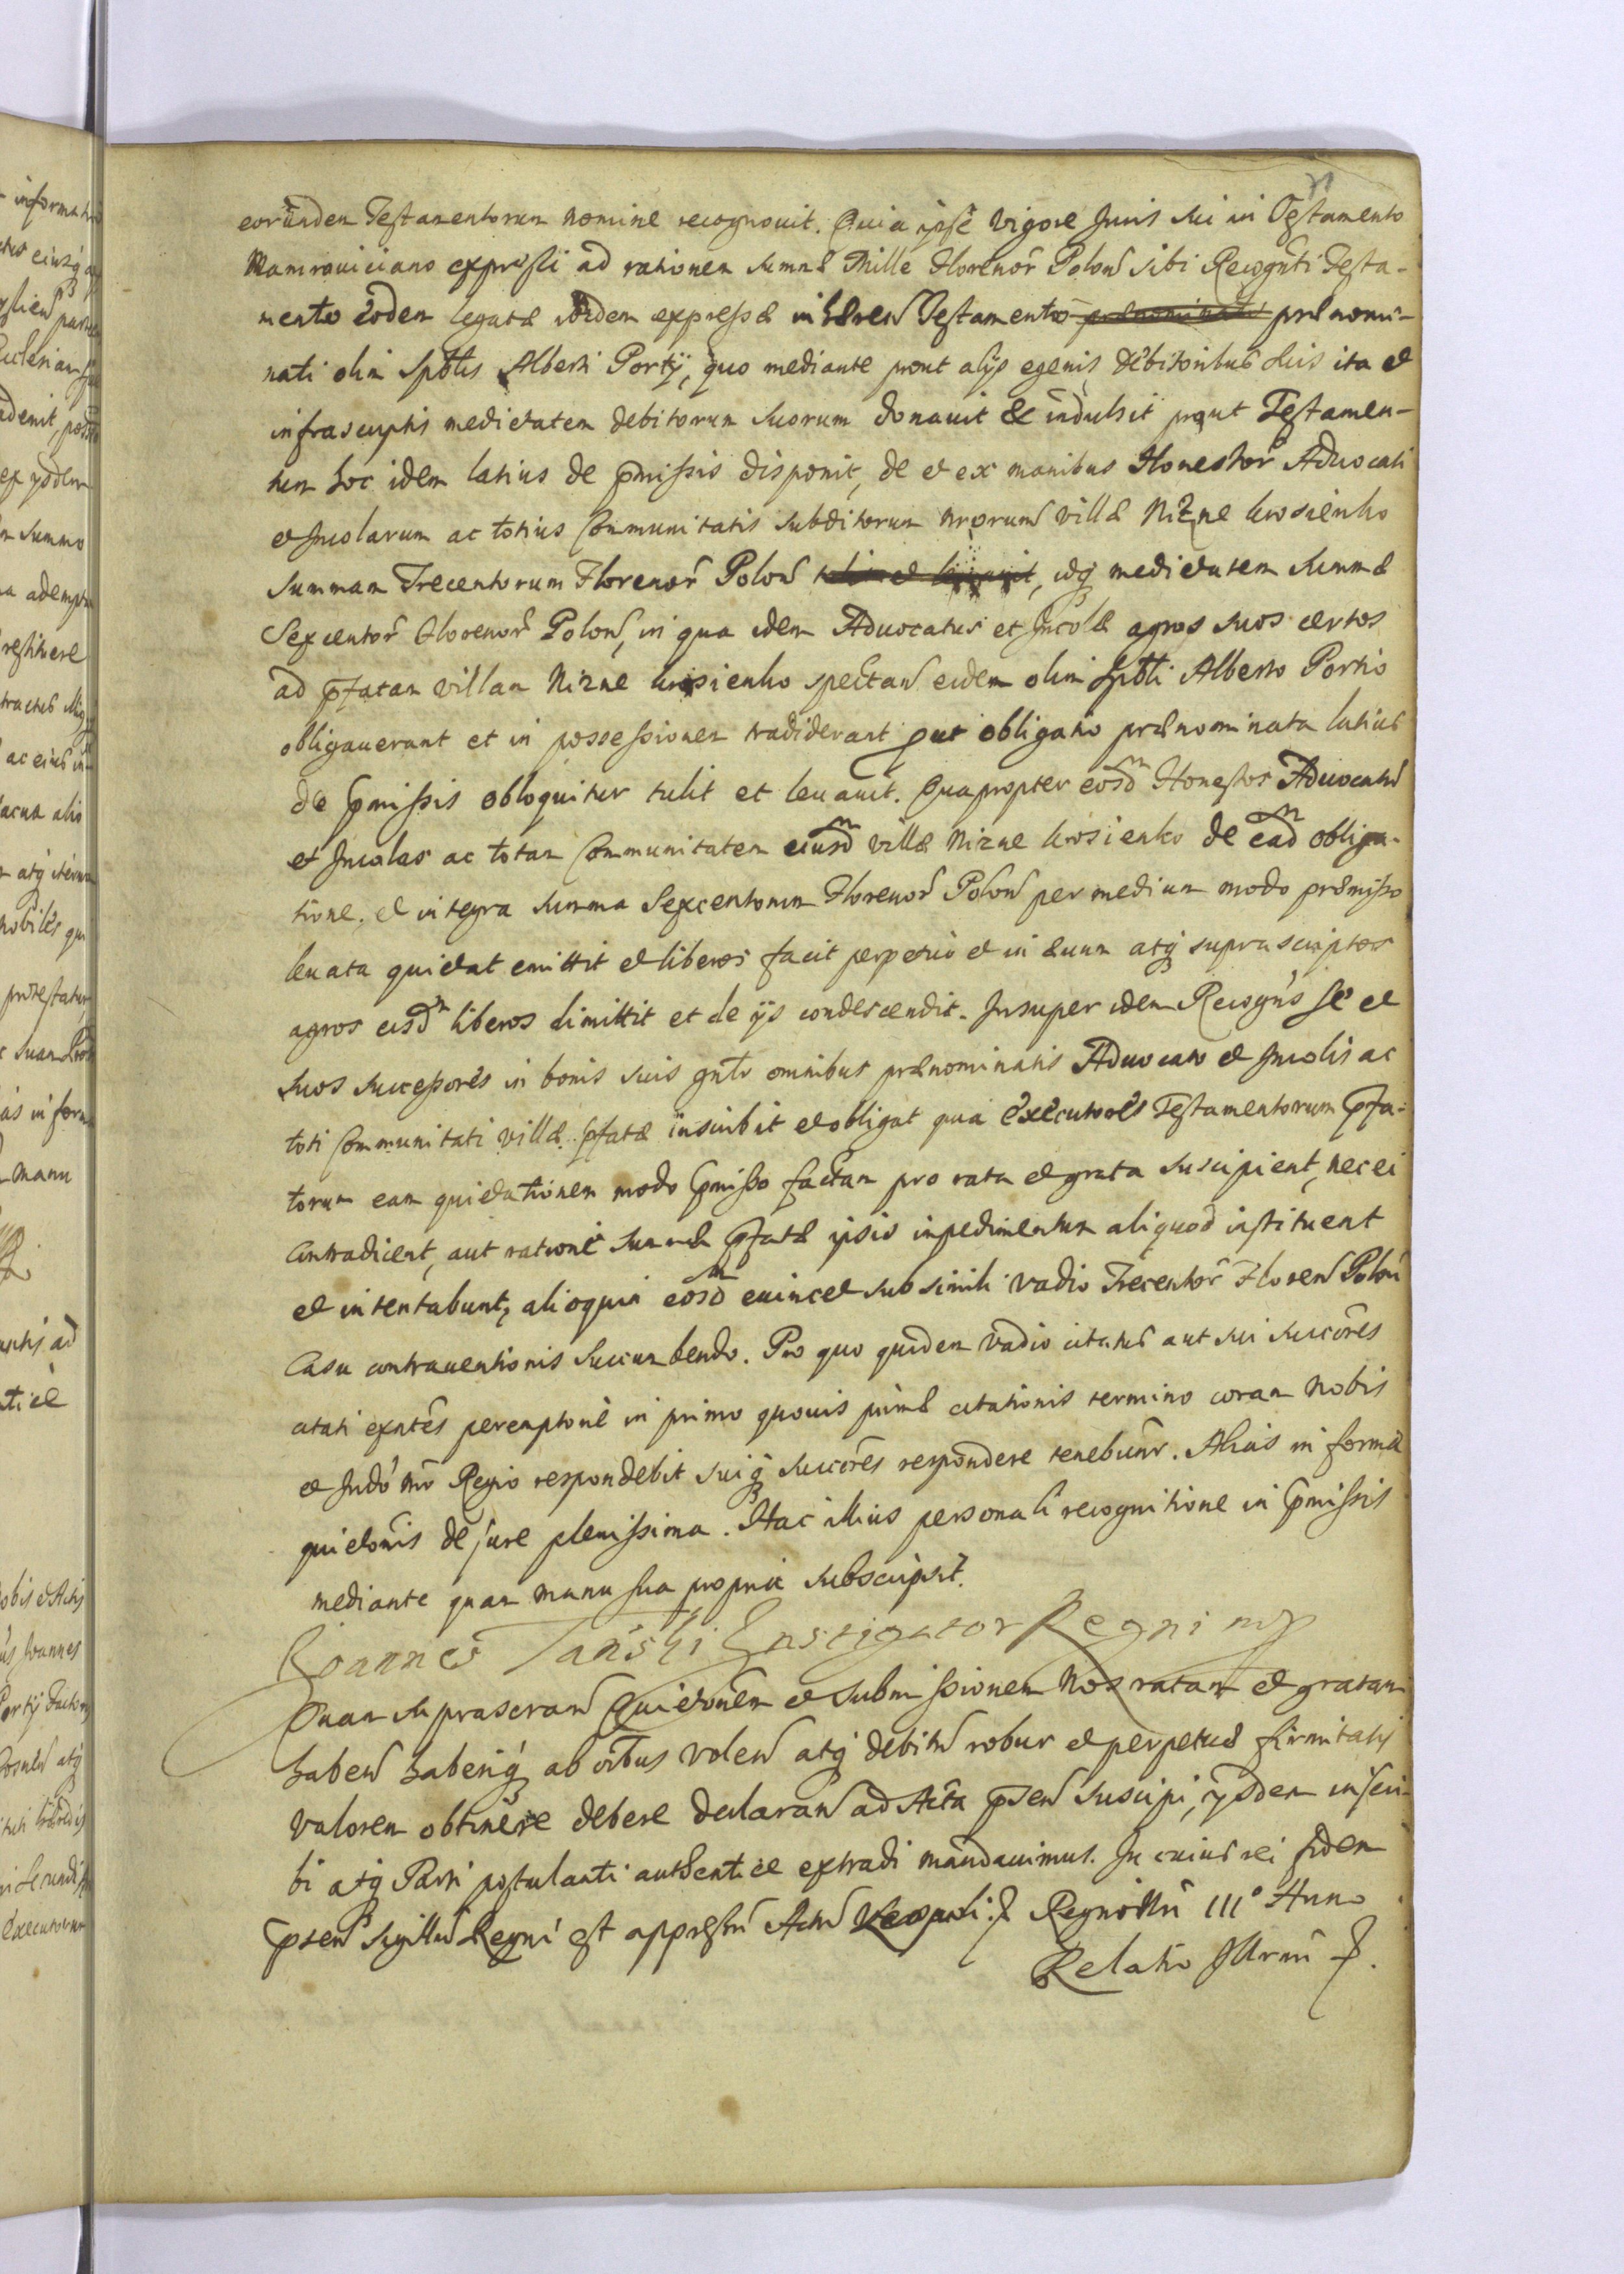 eorundem Testamentorum nomine recognouit. Quia ipse vigore Juris sui in Testamento
Mamrouiciano expressi ad rationem summæ Mille Florenor Polon sibi Recognti Testa-
mento eodem legatæ ibidem expressæ inhæren Testamento prænominati prænomi-
nati olim Spblis Alberti Portÿ, quo mediante prout alÿs egenis debitoribus suis ita et
infrascriptis medietatem debitorum suorum donauit & indulsit prout Testamen-
tum hoc idem latius de pmissis disponit, de et ex manibus Honestor Aduocati
et Incolarum ac totius Communitatis subditorum nrorum villæ Nizne krosienko
summam Trecentorum Florenor Polon tulit et leuauit, idq medietatem summæ
Sexcentor Florenor Polon, in qua idem Aduocatus et Incolæ agros suos certos
ad pfatam villam Nizne krosienko spectan eidem olim Spbli Alberto Portio
obligauerant et in possessionem tradiderant put obligatio prænominata latius
de pmissis obloquitur tulit et leuauit. Quapropter eosdm Honestos Aduocatu
et Incolas ac totam Communitatem eiusdm villæ Nizne krosienko de eadm obliga-
tione, et integra summa Sexcentorum Florenor Polon per medium modo præmisso
leuata quietat emittit et liberos facit perpetuo et in æuum atq suprascriptos
agros eisdm liberos dimittit et de ÿs condescendit. Insuper idem Recogns se et
suos successores in bonis suis gnlr omnibus prænominatis Aduocato et Incolis ac
toti Communitati villæ pfatæ inscribit et obligat quia executores Testamentorum pfa-
torum eam quietationem modo pmisso factam pro rata et grata suscipient, nec ei
contradicent, aut ratione summæ pfatæ ipsis impedimentum aliquod instituent
et intentabunt, alioquin eosdm euincet sub simili vadio Trecentor Floren Polon
Casu contrauentionis succumbendo. Pro quo quidem vadio citatus aut sui succores
citati exntes peremptorie in primo quouis primæ citationis termino coram nobis
et Judo nro Regio respondebit suiq succores respondere tenebunr. Alias in forma
quietonis de jure plenissima. Hac illius personali recognitione in pmissis
mediante quam manu sua propria subscripsit.
Joannes Tański Instigator Regni mp
Quam suprascran Quietonem et submissionem Nos ratam et gratam
haben haberiq ab oibus volen atq debitu robur et perpetuæ firmitatis
valorem obtinere debere declaran ad Acta psen suscipi, ÿsdem inscri-
bi atq Parti postulanti authentice extradi mandauimus. In cuius rei fidem
psen Sigillu Regni est appressu Actu Regnoru nroru III° Anno
Relatio Illrmi